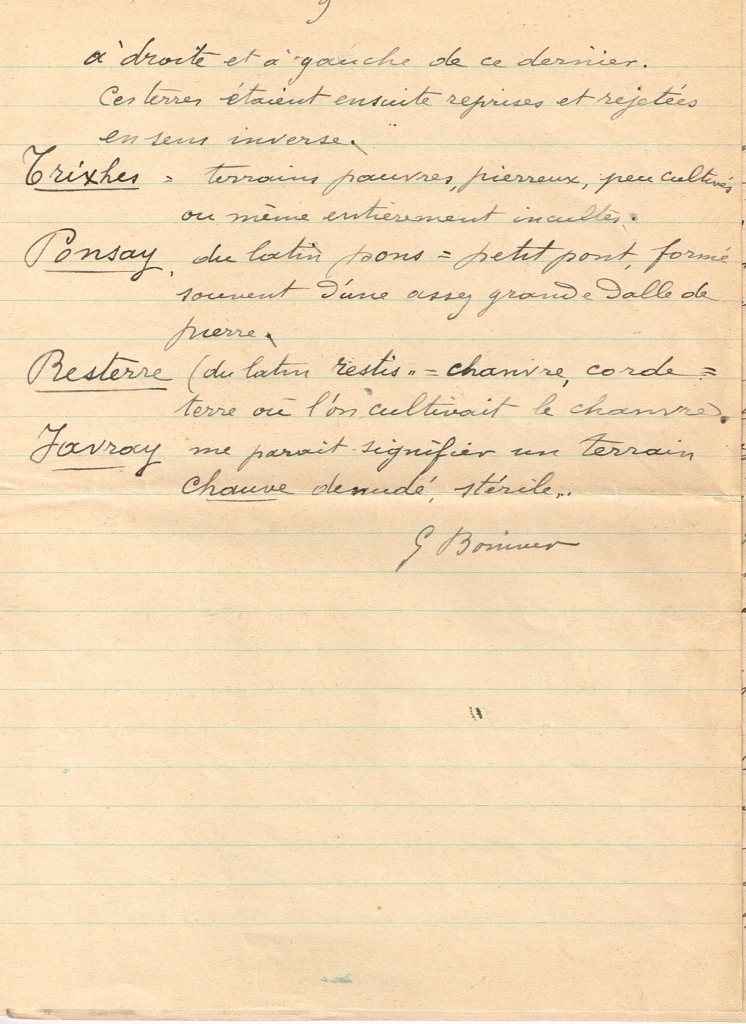 à droite et à gauche de ce dernier.
Ces terres étaient ensuite reprises et rejetées
en sens inverse.
Trixhes = terrains pauvres, pierreux, peu cultivés
ou même entièrement incultes.
Ponsay, du latin pons = petit pont, formé
souvent d'une assez grande dalle de
pierre.
Resterre (du latin restis = chanvre, corde =
terre où l'on cultivait le chanvre).
Javray me parait signifier un terrain
chauve denudé, stérile..
G